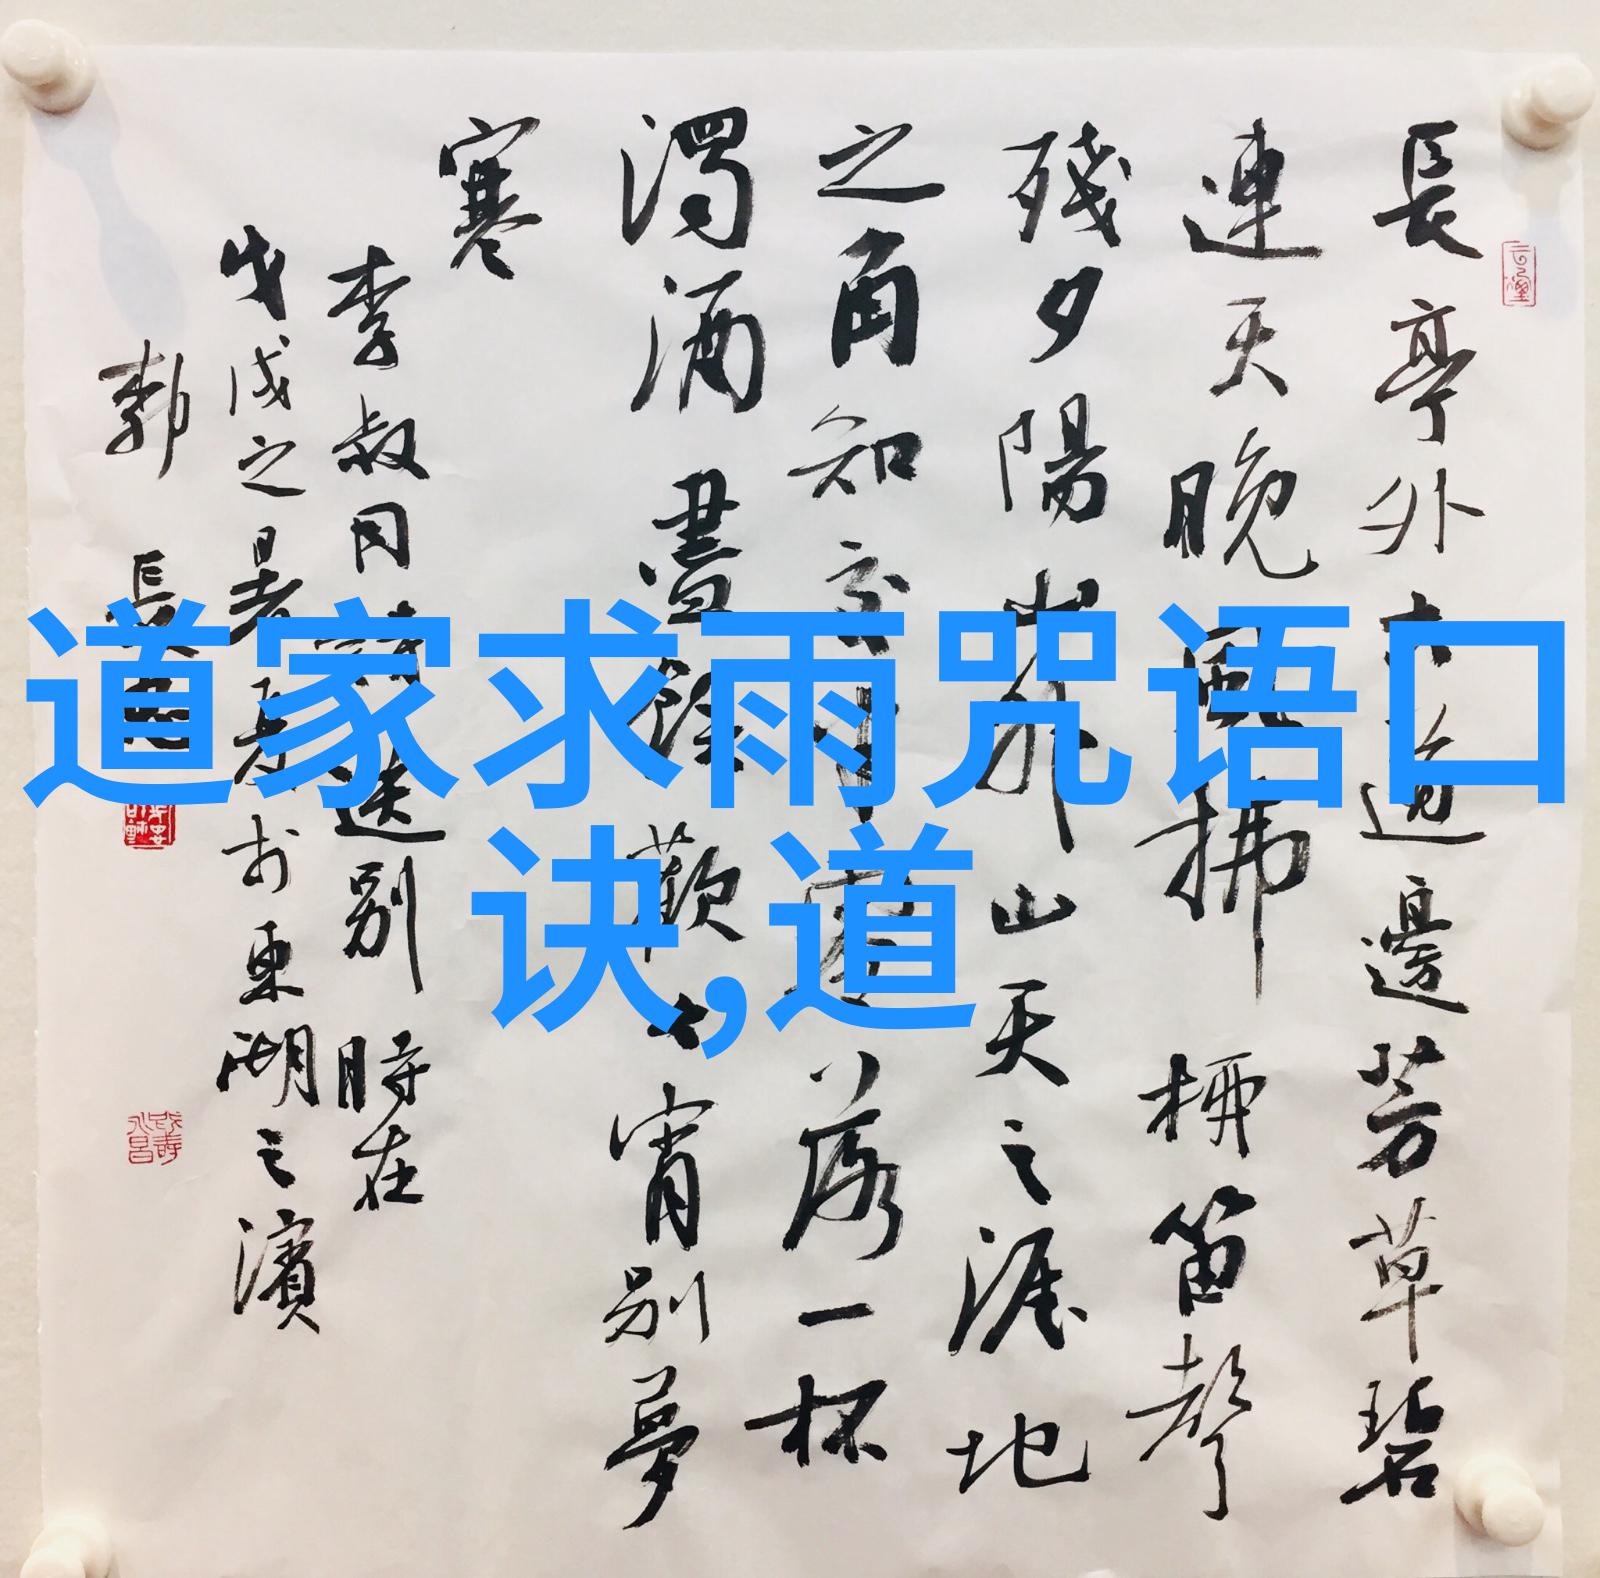 長亭外古道邊芳草碧
連天晚風拂柳笛聲
殘夕陽山外山天之涯地
之角知交半零落一杯
濁酒盡餘歡今宵别夢
寒
李叔同詩送别 時在
戊戌之暑書於東湖之濱
道家求雨咒语口
诀,道